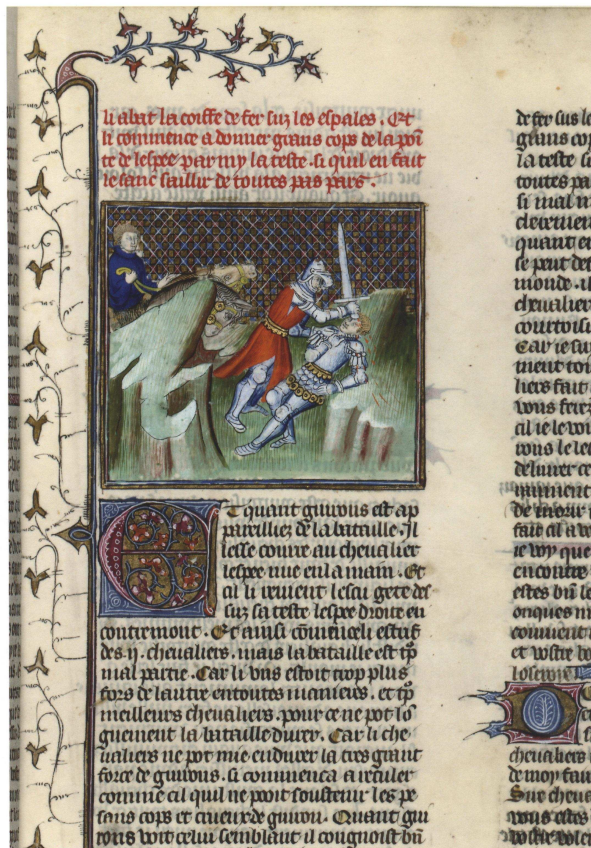 li abat la coiffe de fer suz les espales. Et
li conmence a donner grans cops de la poi
te de lespee par my la teste. si quil en fait
le sanc saillir de toutes pars pars.
Et quant guirons est ap
pareilliez de la bataille. Jl
lesse courre au cheualier
lespee nue en la main. Et
cil li reuient lescu gete des
suz sa teste lespee droite en
contremont. Et ainsi
des .ij. cheualiers. mais la bataille est tp
mal partie. Car li vns estoit trop plus
fors de lautre en toutes manieres. et tp
meilleurs cheualiers. pour ce ne pot lo
guement la bataille durer. Car li che
ualiers ne pot mie endurer la tres grant
force de guirons. si commenca a reculer
comme cil qui ne pooit soustenir les pe
sans cops et crueux de guiron. Quant gui
rons voit celui semblant il congnoist bñ
de fer sus le
grans cop
la teste si
toutes pa
si mal m
quant e
se peut de
monde. il
cheualier
courtoisi
Car ie sui
ment
liers fait
vous ferez
cil ie le voi
vous le le
deliurer ce
de morir
fait cil a
ie voy que
encontre
estes bñ le
onques m
conuient
et vostre
cheualiers
de moy fau
Sire cheua
vous estes
vostre volen